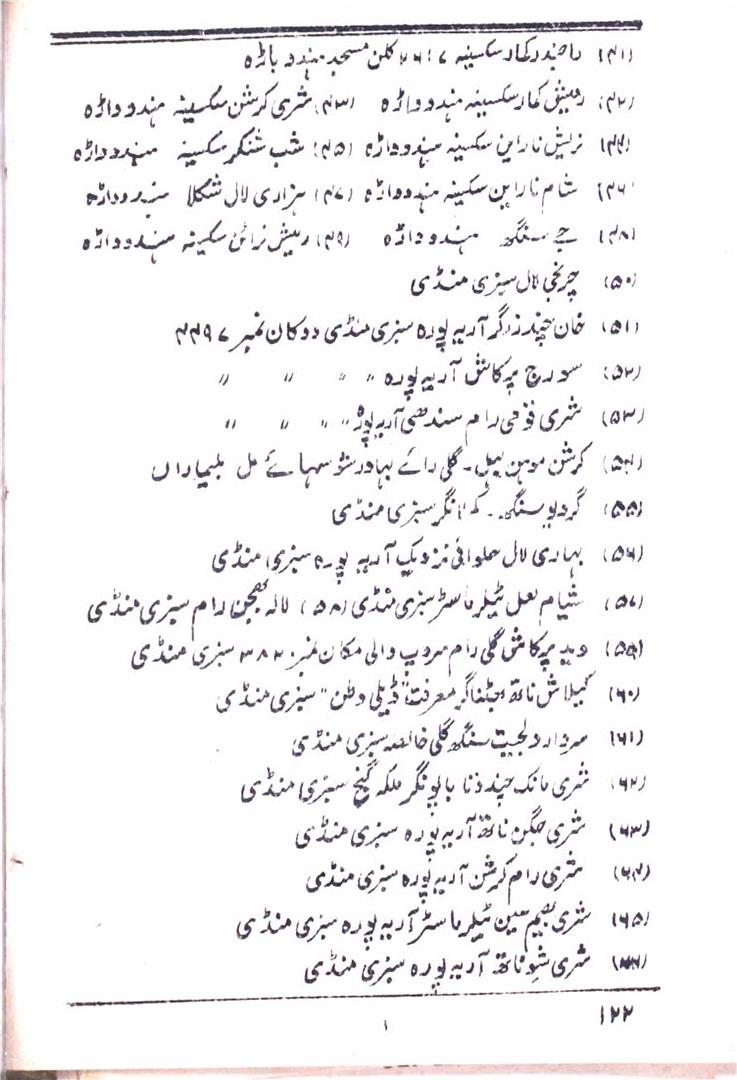 (۴۱) راجندر کمار سکسینہ ۲۶۱۷ کلن مسجد ہندو باڑہ
(۴۲) رمیش کمار سکسینہ ہندو واڑہ (۴۳) شری کرشن سکسینہ ہندو واڑہ
(۴۴) نریش ناراین سکسینہ ہندو واڑہ (۴۵) شب شنکر سکسینہ ہندو واڑہ
(۴۶) شام ناراین سکسینہ ہندو واڑہ (۴۷) ہزاری لال شکلا ہندو واڑہ
(۴۸) جے سنگھ ہندو واڑہ (۴۹) رمیش نرائن سکسینہ ہندو واڑہ
(۵۰) چرنجی لال سبزی منڈی
(۵۱) خان چند زرگر آریہ پورہ سبزی منڈی دوکان نمبر ۴۴۹۷
(۵۲) سورج پرکاش آریہ پورہ " " " "
(۵۳) شری فوجی رام سندھی آریہ پورہ " " " "
(۵۴) کرشن موہن بیل۔ گلی رائے بہادر شو سہائے مل بلیماراں
(۵۵) گردیو سنگھ۔ سبزی منڈی
(۵۶) بہاری لال حلوائی نزدیک آریہ پورہ سبزی منڈی
(۵۷) شیام لعل ٹیلر ماسٹر سبزی منڈی (۵۸) لالہ بھجن رام سبزی منڈی
(۵۹) وید پرکاش گلی رام سروپ والی مکان نمبر ۳۸۲ سبزی منڈی
(۶۰) کیلاش ناتھ بھٹناگر معرفت "ڈیلی وطن" سبزی منڈی
(۶۱) سردار دلجیت سنگھ گلی خالصہ سبزی منڈی
(۶۲) شری مانک چند دتا باپو نگر ملکہ گنج سبزی منڈی
(۶۳) شری جگن ناتھ آریہ پورہ سبزی منڈی
(۶۴) شری رام کرشن آریہ پورہ سبزی منڈی
(۶۵) شری بھیم سین ٹیلر ماسٹر آریہ پورہ سبزی منڈی
(۶۶) شری شو ناتھ آریہ پورہ سبزی منڈی
۱۲۲